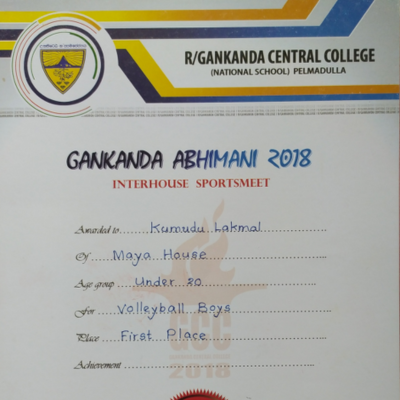 R/GANKANDA CENTRAL COLLEGE
(NATIONAL SCHOOL) PELMADULLA
GANKANDA ABHIMANI 2018
INTERHOUSE SPORTSMEET
Awarded to.....Kumudu Lakmal.....
Of.....Maya House.....
Age group.....Under 20.....
For.....Volleyball Boys.....
Place.....First Place.....
Achievement.....
GCC
2018